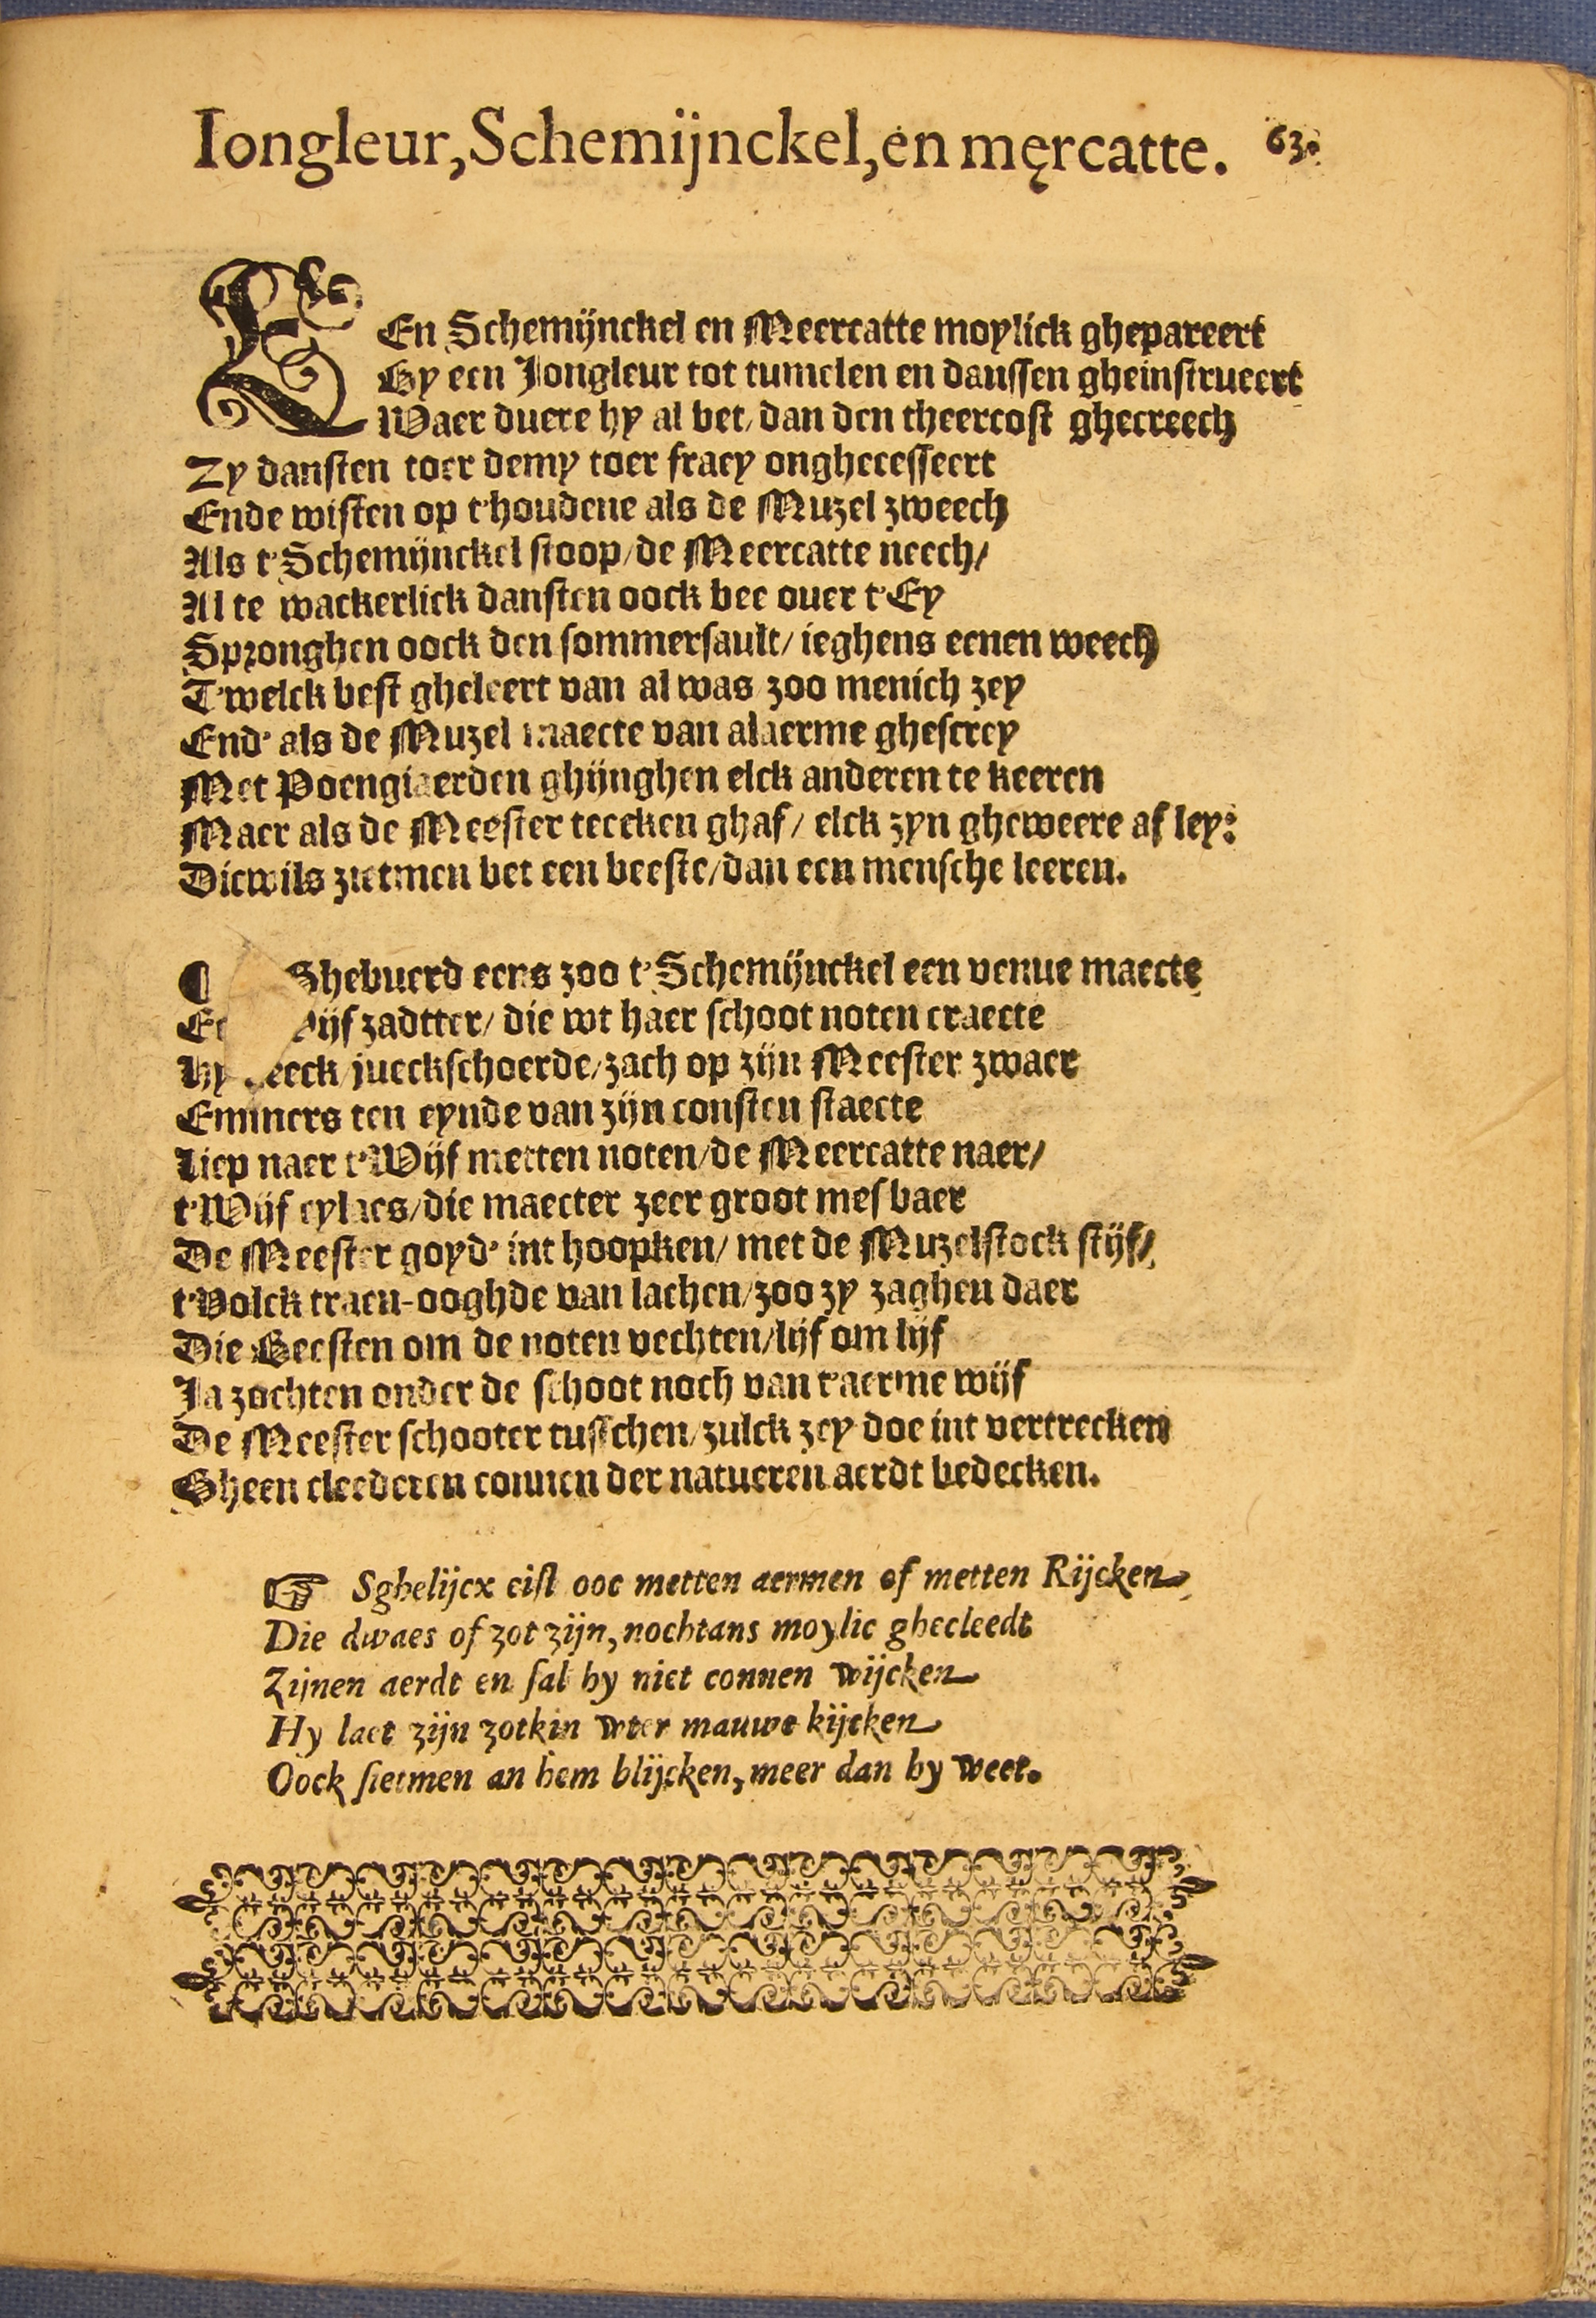 Iongleur, Schemijnckel, en męrcatte. 63.
EEn Schemijnckel en Meercatte moylick ghepareert
By een Jongleur tot tumelen en danssen gheinstrueert
Waer duere hy al bet/ dan den theercost ghecreech
Zy dansten toer demy toer fraey onghecesseert
Ende wisten op t'houdene als de Muzel zweech
Als t'Schemijnckel stoop/ de Meercatte neech/
Al te wackerlick dansten oock bee ouer t'Ey
Spronghen oock den sommersault/ ieghens eenen weech
T'welck best gheleert van al was zoo menich zey
End' als de Muzel maecte van alaerme ghescrey
Met Poengiaerden ghijnghen elck anderen te keeren
Maer als de Meester teecken ghaf/ elck zyn gheweere af ley:
Dicwils zietmen bet een beeste/ dan een mensche leeren.
¶ Ghebuerd eens zoo t'Schemijnckel een venue maecte
zadtter/ die wt haer schoot noten craecte
Hy jueckschoerde/ zach op zijn Meester zwaer
Emmers ten eynde van zijn consten staecte
Liep naer t'Wijf metten noten/ de Meercatte naer/
t'Wijf eylaes/ die maecter zeer groot mesbaer
De Meester goyd' int hoopken/ met de Muzelstock stijf/
t'Volck traen-ooghde van lachen/ zoo zy zaghen daer
Die Beesten om de noten vechten/ lijf om lijf
Ja zochten onder de schoot noch van t'aerme wijf
De Meester schooter tusschen/ zulck zey doe int vertrecken
Gheen cleederen connen der natueren aerdt bedecken.
☞ Sghelijcx eist ooc metten aermen of metten Rijcken
Die dwaes of zot zijn, nochtans moylic ghecleedt
Zijnen aerdt en sal hy niet connen wijcken
Hy laet zijn zotkin wter mauwe kijcken
Oock sietmen an hem blijcken, meer dan hy weet.